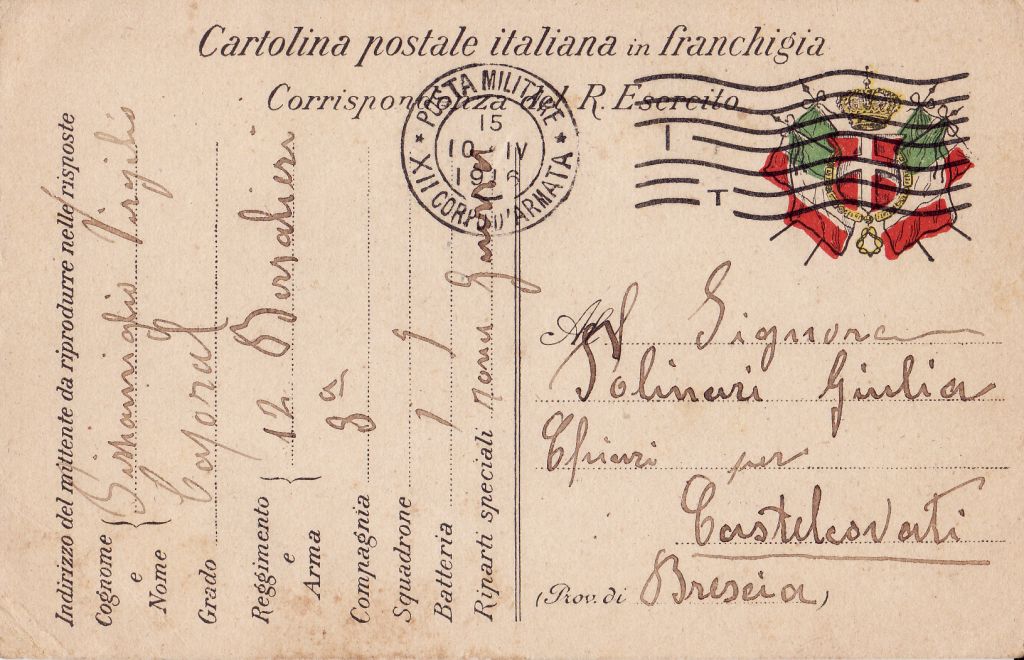 Cartolina postale italiana in franchigia
Corrispondenza del R. Esercito
POSTA MILITARE
15
10 IV
XII CORPO D'ARMATA
T
Indirizzo del mittente da riprodurre nelle risposte
Cognome e Nome { Virgilio
Grado Caporal
Reggimento e Arma { 12 Bersaglieri
Compagnia 8a
Squadrone
Batteria
Riparti speciali Zona Guerra
Alla Signora
Polinari Giulia
Chiari per
Castelcovati
(Prov. di Brescia)